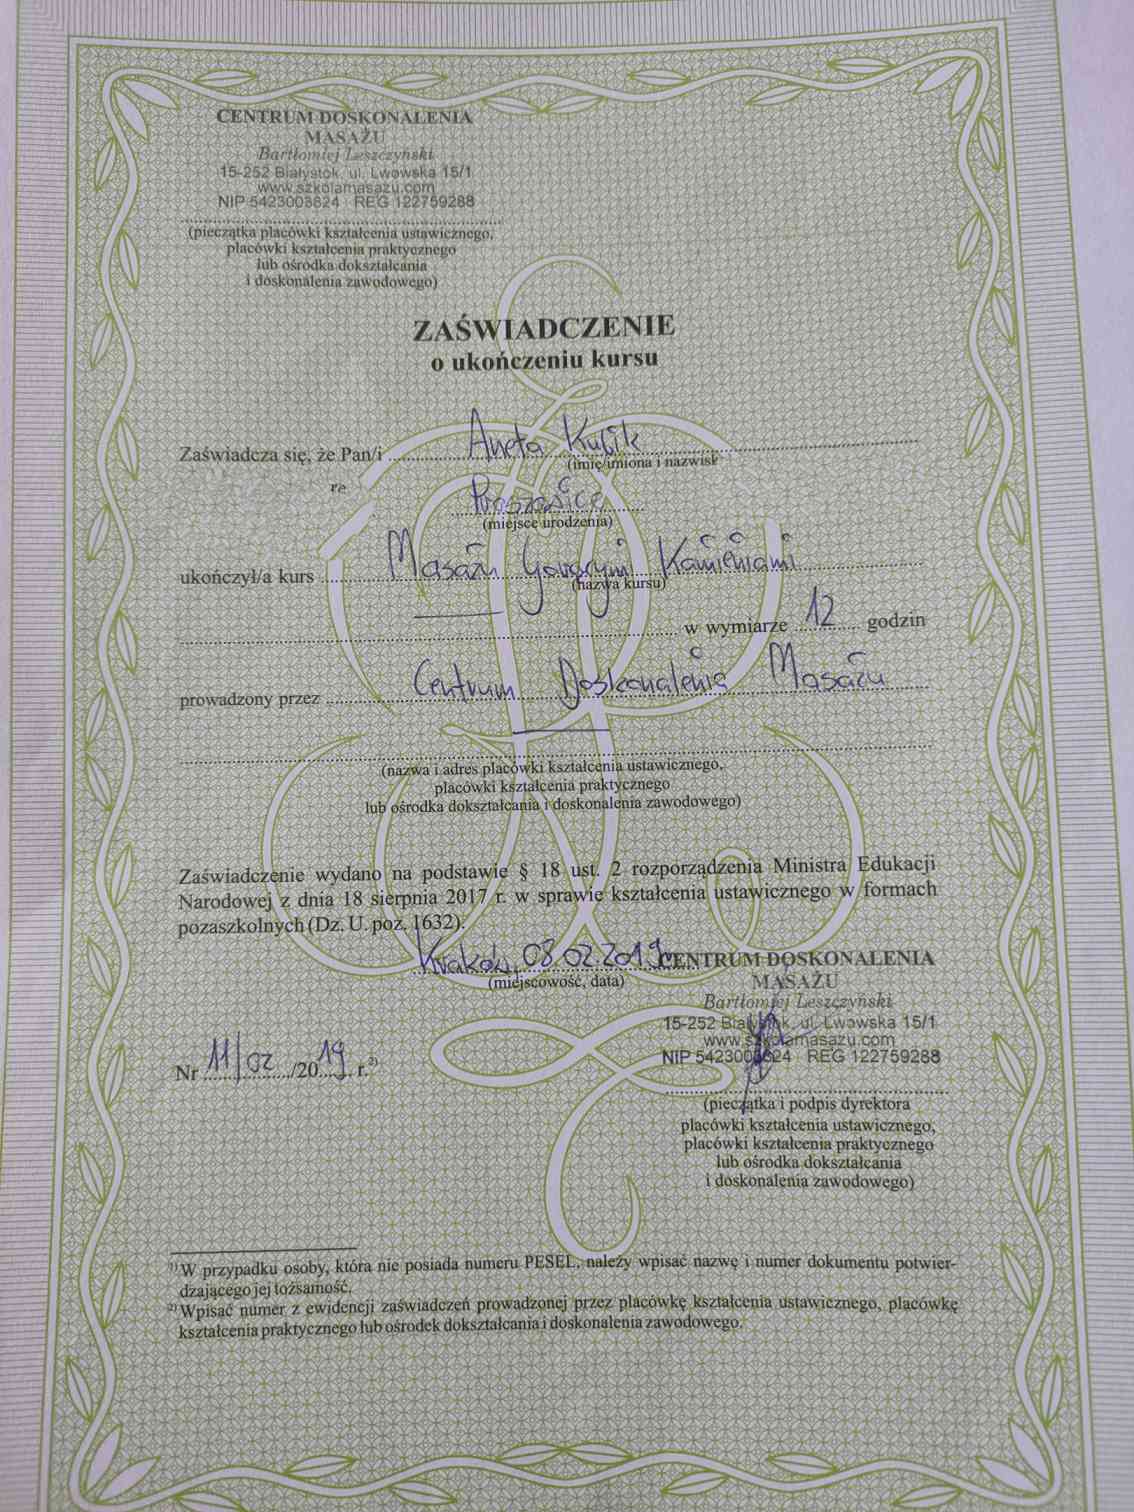 CENTRUM DOSKONALENIA
MASAŻU
Bartłomiej Leszczyński
15-252 Białystok, ul. Lwowska 15/1
www.szkolamasazu.com
NIP 5423003624 REG 122759288
(pieczątka placówki kształcenia ustawicznego,
placówki kształcenia praktycznego
lub ośrodka dokształcania
i doskonalenia zawodowego)
ZAŚWIADCZENIE
o ukończeniu kursu
Zaświadcza się, że Pan/i Aneta Kubik
(imię/imiona i nazwisko
(miejsce urodzenia)
ukończył/a kurs Masażu Gorącymi Kamieniami
(nazwa kursu)
w wymiarze 12 godzin
prowadzony przez Centrum Doskonalenia Masażu
(nazwa i adres placówki kształcenia ustawicznego,
placówki kształcenia praktycznego
lub ośrodka dokształcania i doskonalenia zawodowego)
Zaświadczenie wydano na podstawie § 18 ust. 2 rozporządzenia Ministra Edukacji
Narodowej z dnia 18 sierpnia 2017 r. w sprawie kształcenia ustawicznego w formach
pozaszkolnych (Dz. U. poz. 1632).
Kraków, 08.02.2019r.
(miejscowość, data)
CENTRUM DOSKONALENIA
MASAŻU
Bartłomiej Leszczyński
15-252 Białystok, ul. Lwowska 15/1
www.szkolamasazu.com
NIP 5423003624 REG 122759288
Nr 11/02/2019 r.²⁾
(pieczątka i podpis dyrektora
placówki kształcenia ustawicznego,
placówki kształcenia praktycznego
lub ośrodka dokształcania
i doskonalenia zawodowego)
¹⁾ W przypadku osoby, która nie posiada numeru PESEL, należy wpisać nazwę i numer dokumentu potwier-
dzającego jej tożsamość.
²⁾ Wpisać numer z ewidencji zaświadczeń prowadzonej przez placówkę kształcenia ustawicznego, placówkę
kształcenia praktycznego lub ośrodek dokształcania i doskonalenia zawodowego.